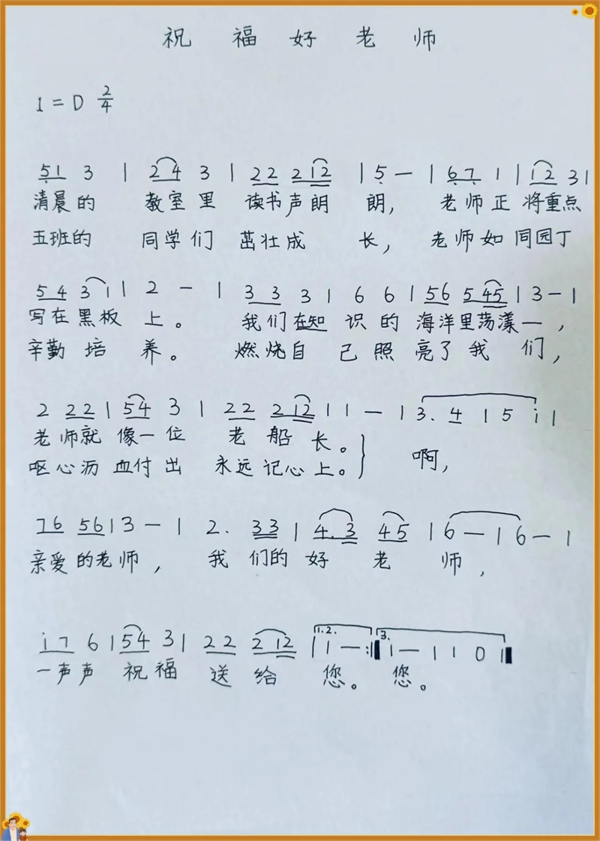 祝福好老师
1=D 2/4
51 3 | 24 3 | 22 212 | 5 — | 67 1 | 12 31
清晨的 教室里 读书声朗 朗， 老师正 将重点
五班的 同学们 茁壮成 长， 老师如同园丁
54 31 | 2 - | 33 3 | 6 6 | 56 545 | 3 - |
写在黑板 上。 我们在知 识的 海洋里荡漾一，
辛勤培 养。 燃烧自 己照 亮了我 们，
2 22 | 54 3 | 22 212 | 1 — | 3. 4 | 5 i |
老师就 像一位 老船 长。 啊，
呕心沥 血付出 永远记心上。
76 56 | 3 — | 2. 33 | 4.3 45 | 6 — | 6 — |
亲爱的老师， 我们的好 老 师，
i7 6 | 54 3 | 22 212 | 1.2. 1 — :| 3. 1 — | 1 0 |
一声声 祝福 送给 您。 您。